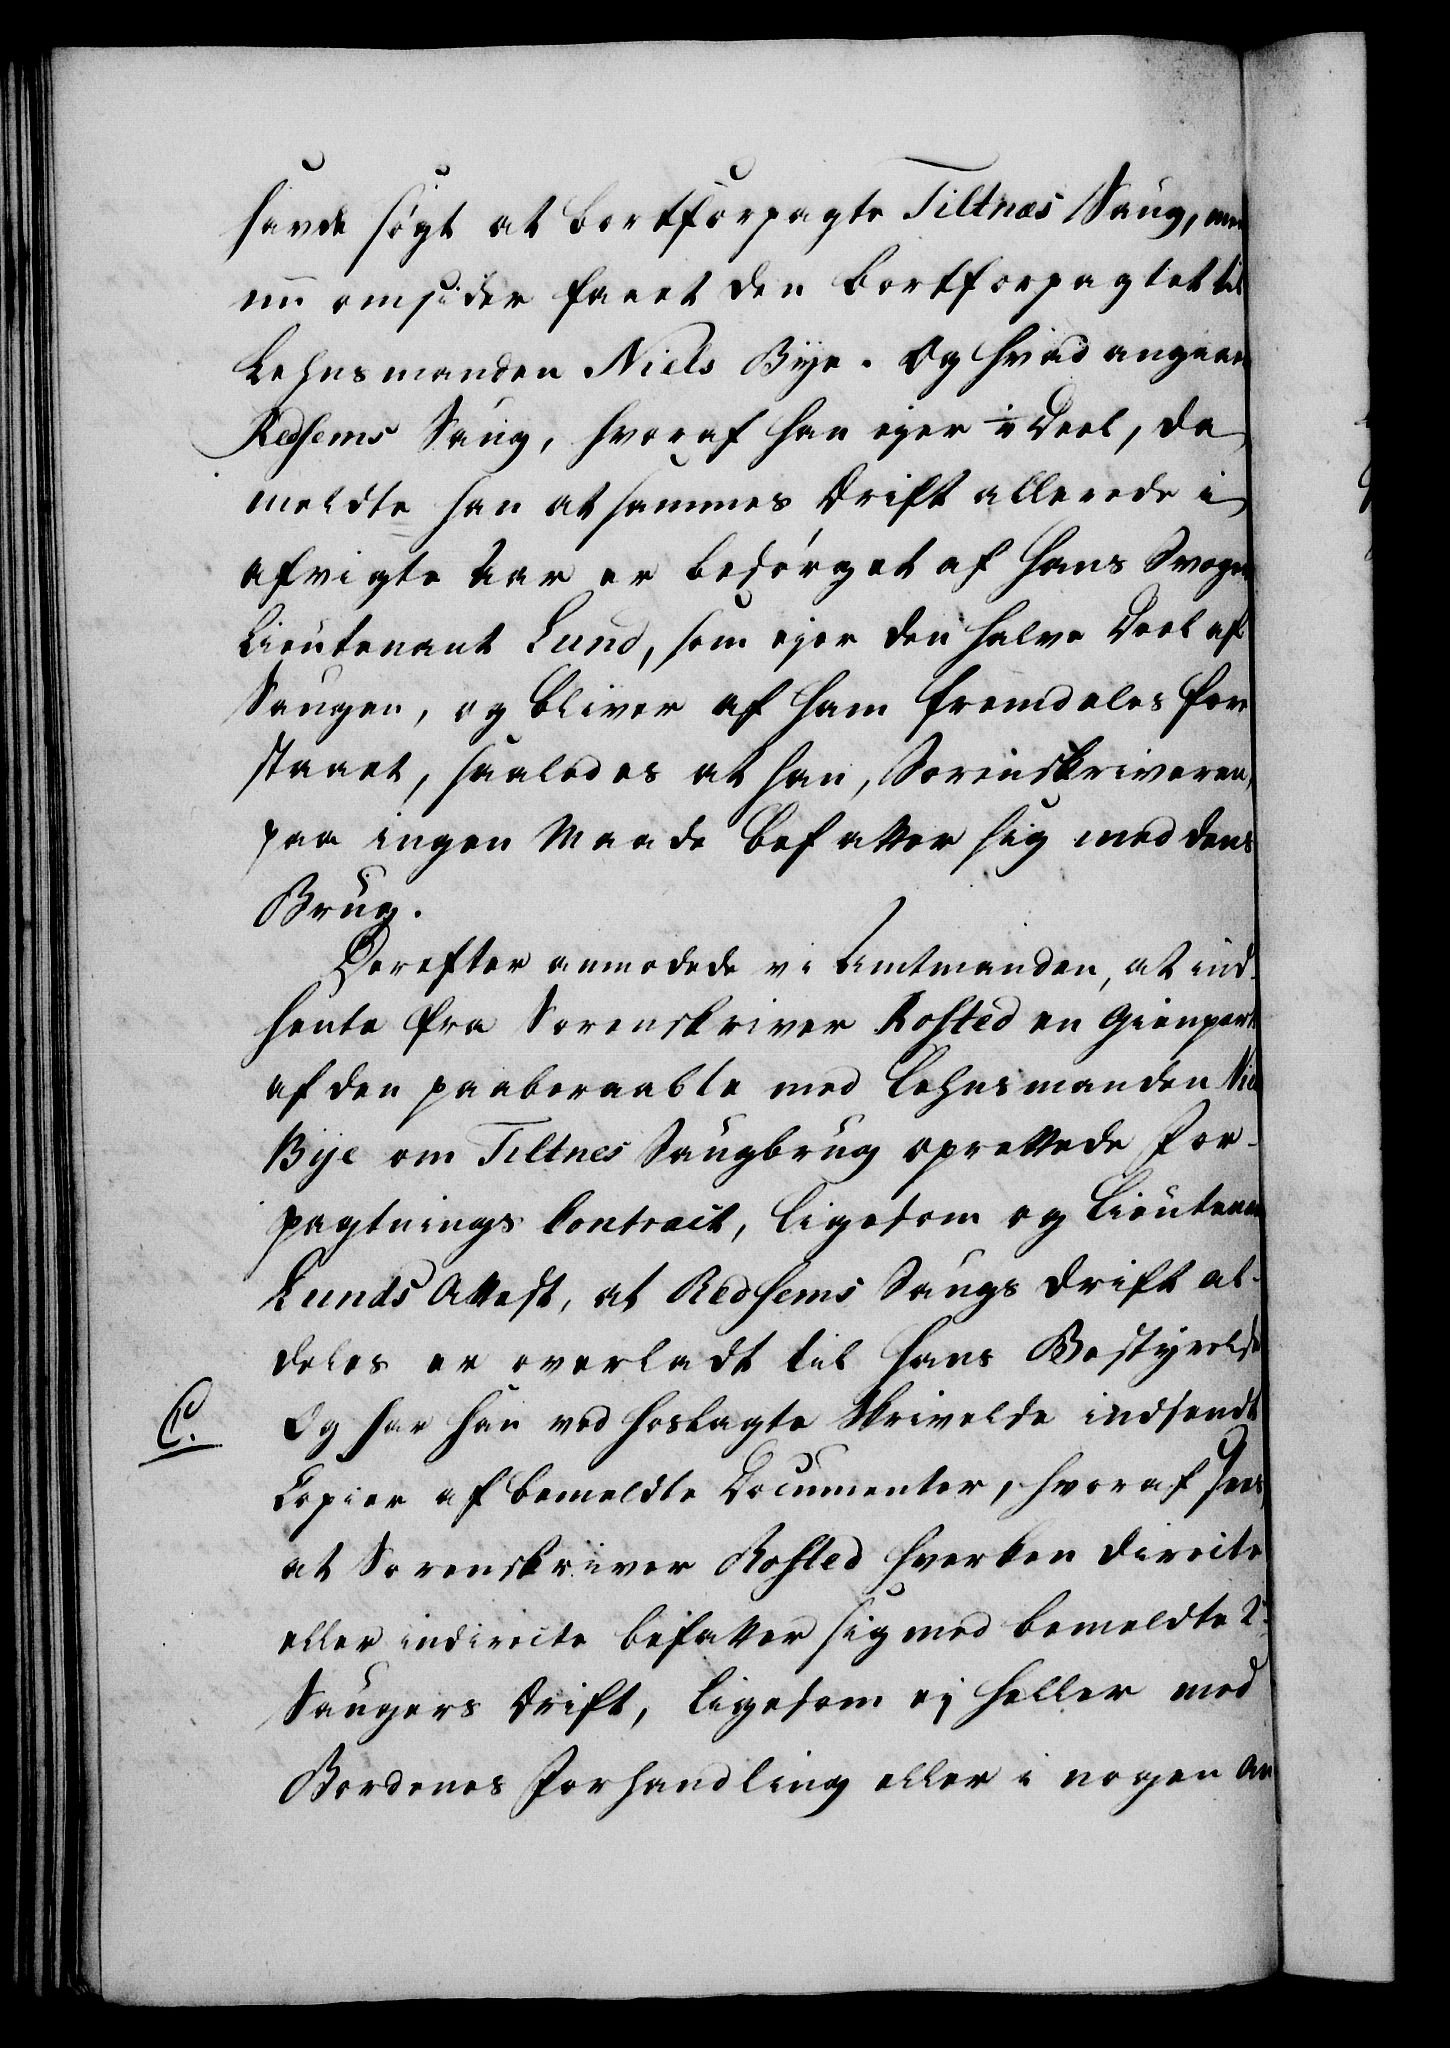 havde søgt at bortforpagte Tiltnæs Saug, men
nu omsider faaet den bortforpagtet til
Lehnsmanden Niels Bye. Og hvad angaaer
Redsems Saug, hvoraf han ejer ½ Deel, da
meldte han at sammes Drift allerede i
afvigte Aar er besørget af hans Svoger
Lieutenant Lund, som ejer den halve Deel af
Saugen, og bliver af ham fremdeles fore
staaet, saaledes at han, Sorinskriveren,
paa ingen Maade befatter sig med dens
Brug.
Derefter anmodede vi Amtmanden, at ind-
hente fra Sorenskriver Rosted en Gienpart
af den paaberaabte med Lehnsmanden
Bye om Tiltnes Saugbrug oprettede For-
pagtnings Contract, ligesom og Lieutenant
Lunds Attest, at Redsems Saugs Drift al-
deles er overladt til hans Bestyrelse
C. Og har han ved hoslagte Skrivelse indsendt
Copier af bemeldte Documenter, hvoraf sees,
at Sorenskriver Rosted hverken directe
eller indirecte befatter sig med bemeldte 2de
Saugers Drift, ligesom ej heller med
Bordenes Forhandling eller i nogen An